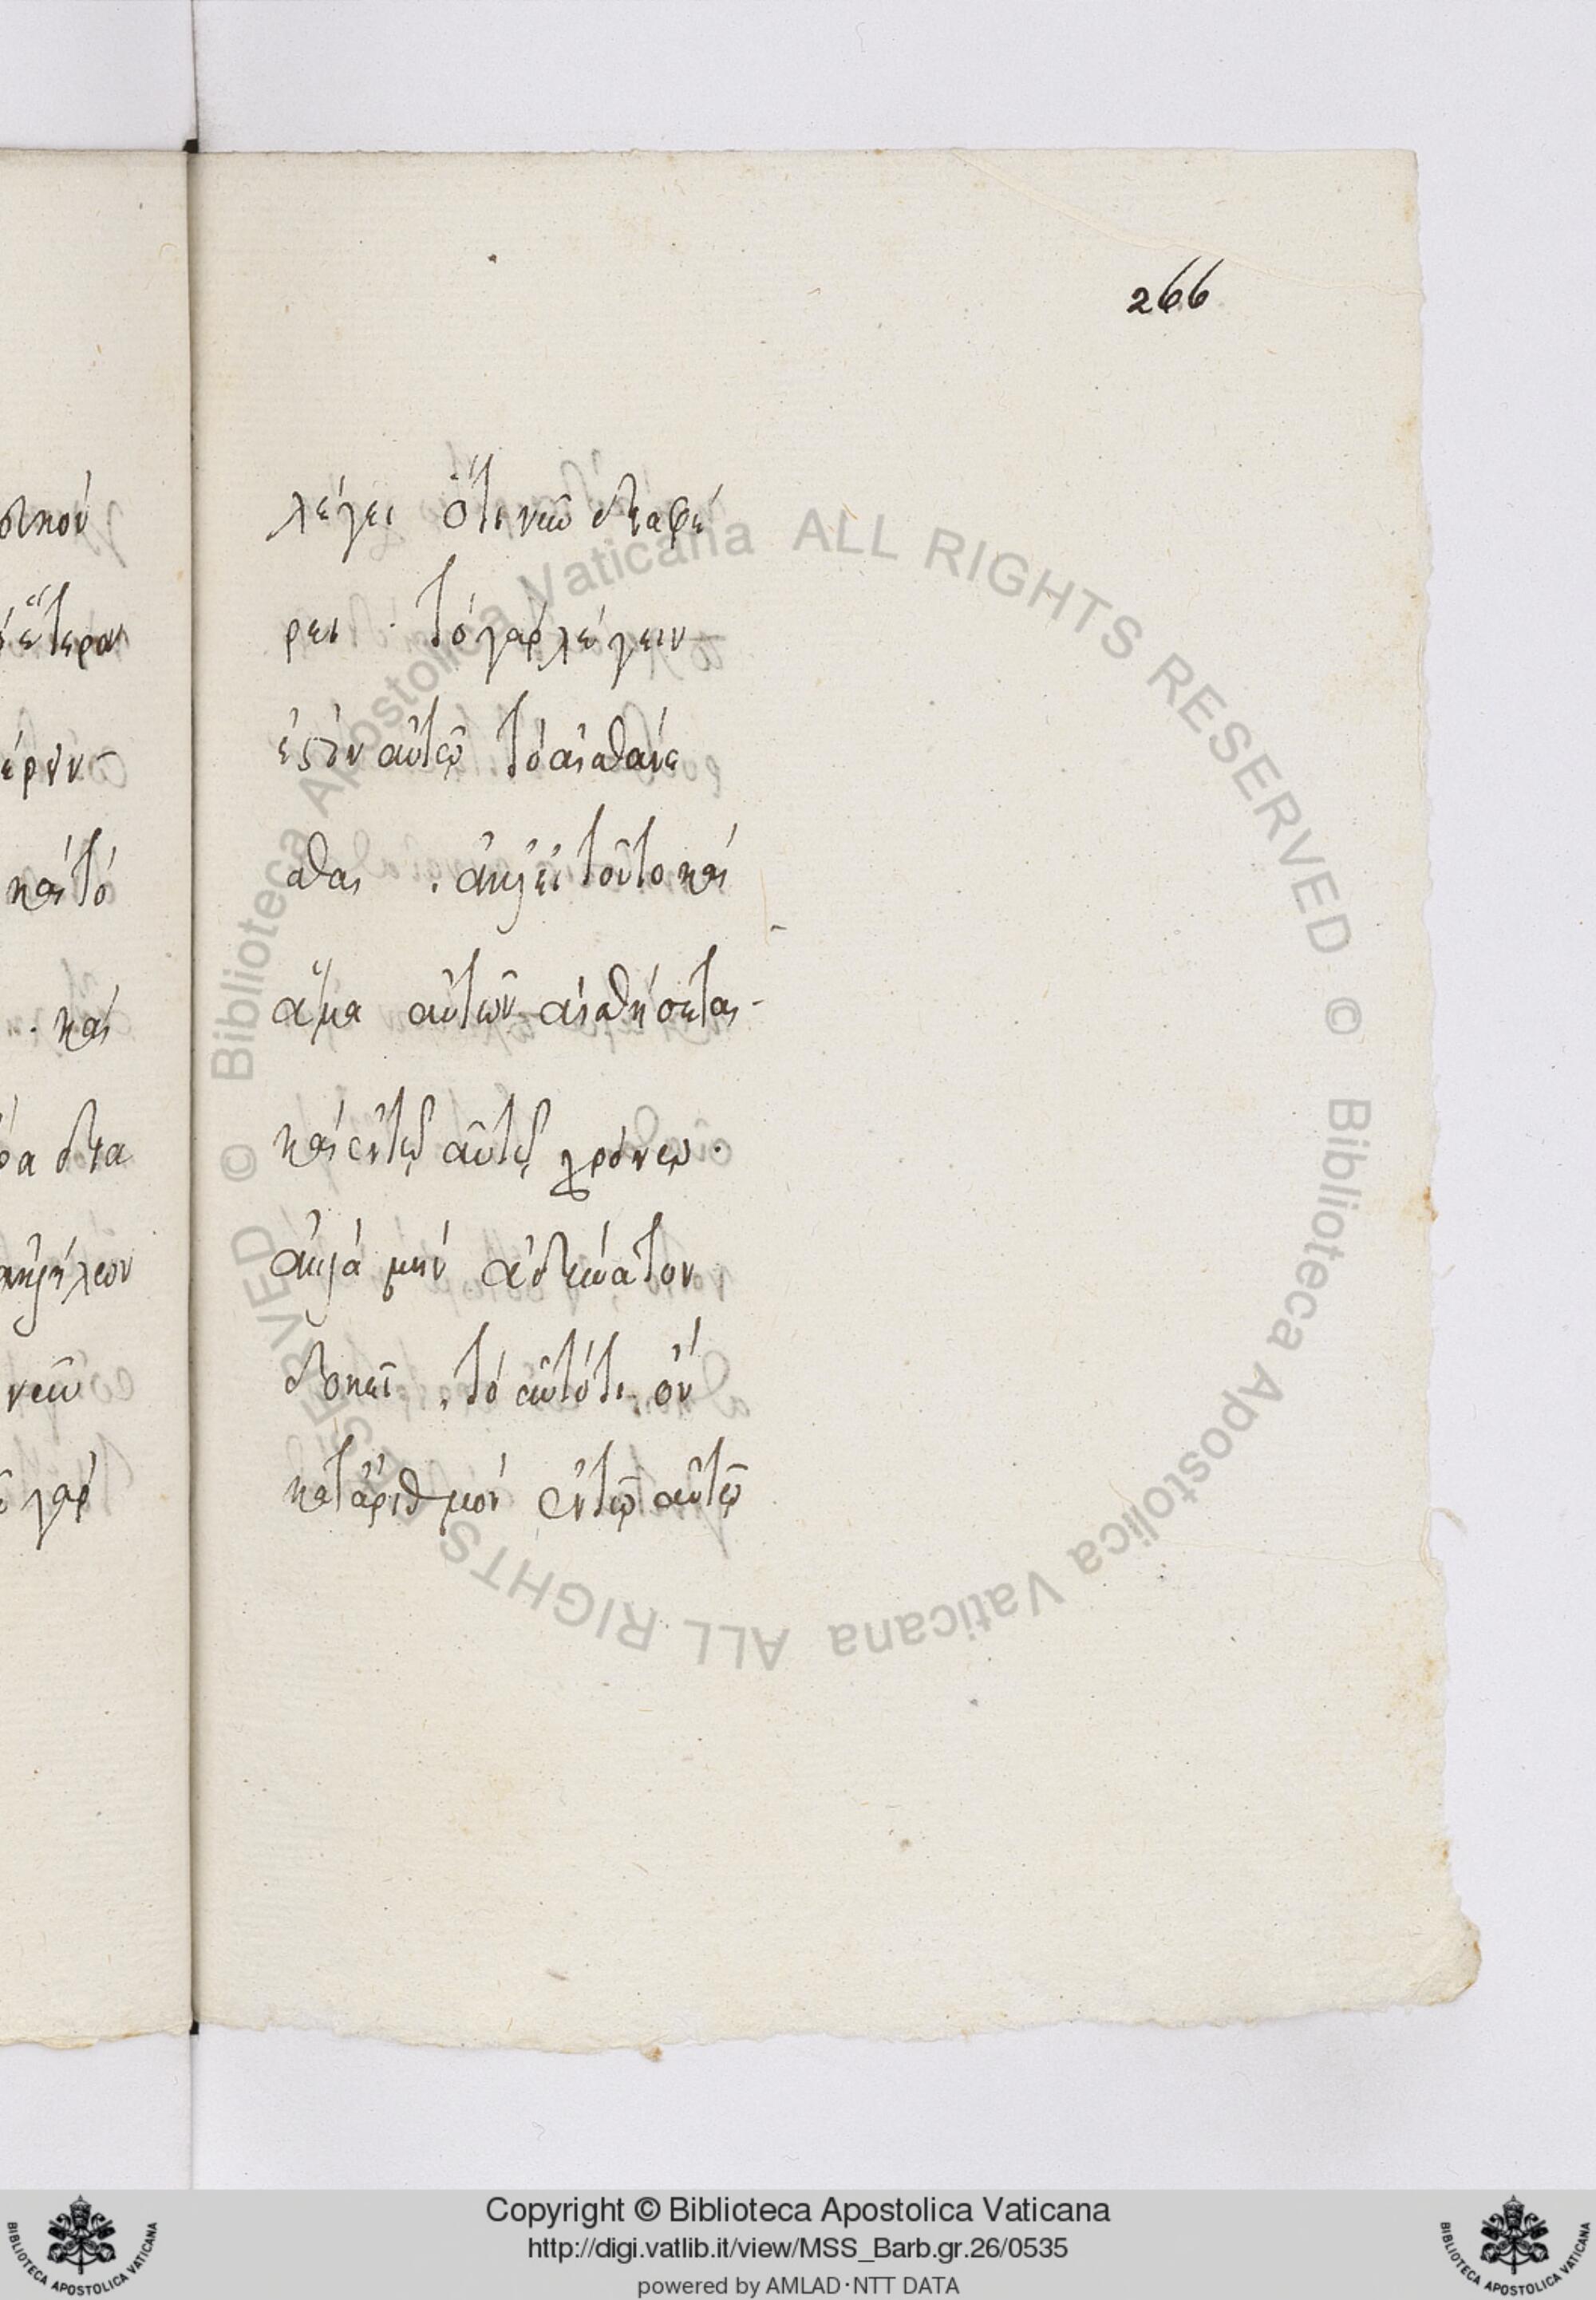 266
στικοὺ
ἕτερον
έρην
καὶ τὸ
. καὶ
δια
ἀλλήλων
νῦν
γὰρ
λέγει ὅτι νῦν διαφέ
ρει · τὸ γὰρ λέγειν
ἐστὶν αὐτῷ τὸ αἰσθάνε
σθαι . ἀλλ' εἰ τοῦτο καὶ
ἅμα αὐτῶν αἰσθήσεται
καὶ ἐν τῷ αὐτῷ χρόνῳ ·
ἀλλὰ μὴν ἀδύνατον
δοκεῖ . τὸ αὐτό τι ὂν
κατ' ἀριθμὸν ἐν τῷ αὐτῷ
© Biblioteca Apostolica Vaticana ALL RIGHTS RESERVED © Biblioteca Apostolica Vaticana ALL RIGHTS RESERVED
Copyright © Biblioteca Apostolica Vaticana
http://digi.vatlib.it/view/MSS_Barb.gr.26/0535
powered by AMLAD·NTT DATA
BIBLIOTECA APOSTOLICA VATICANA
BIBLIOTECA APOSTOLICA VATICANA